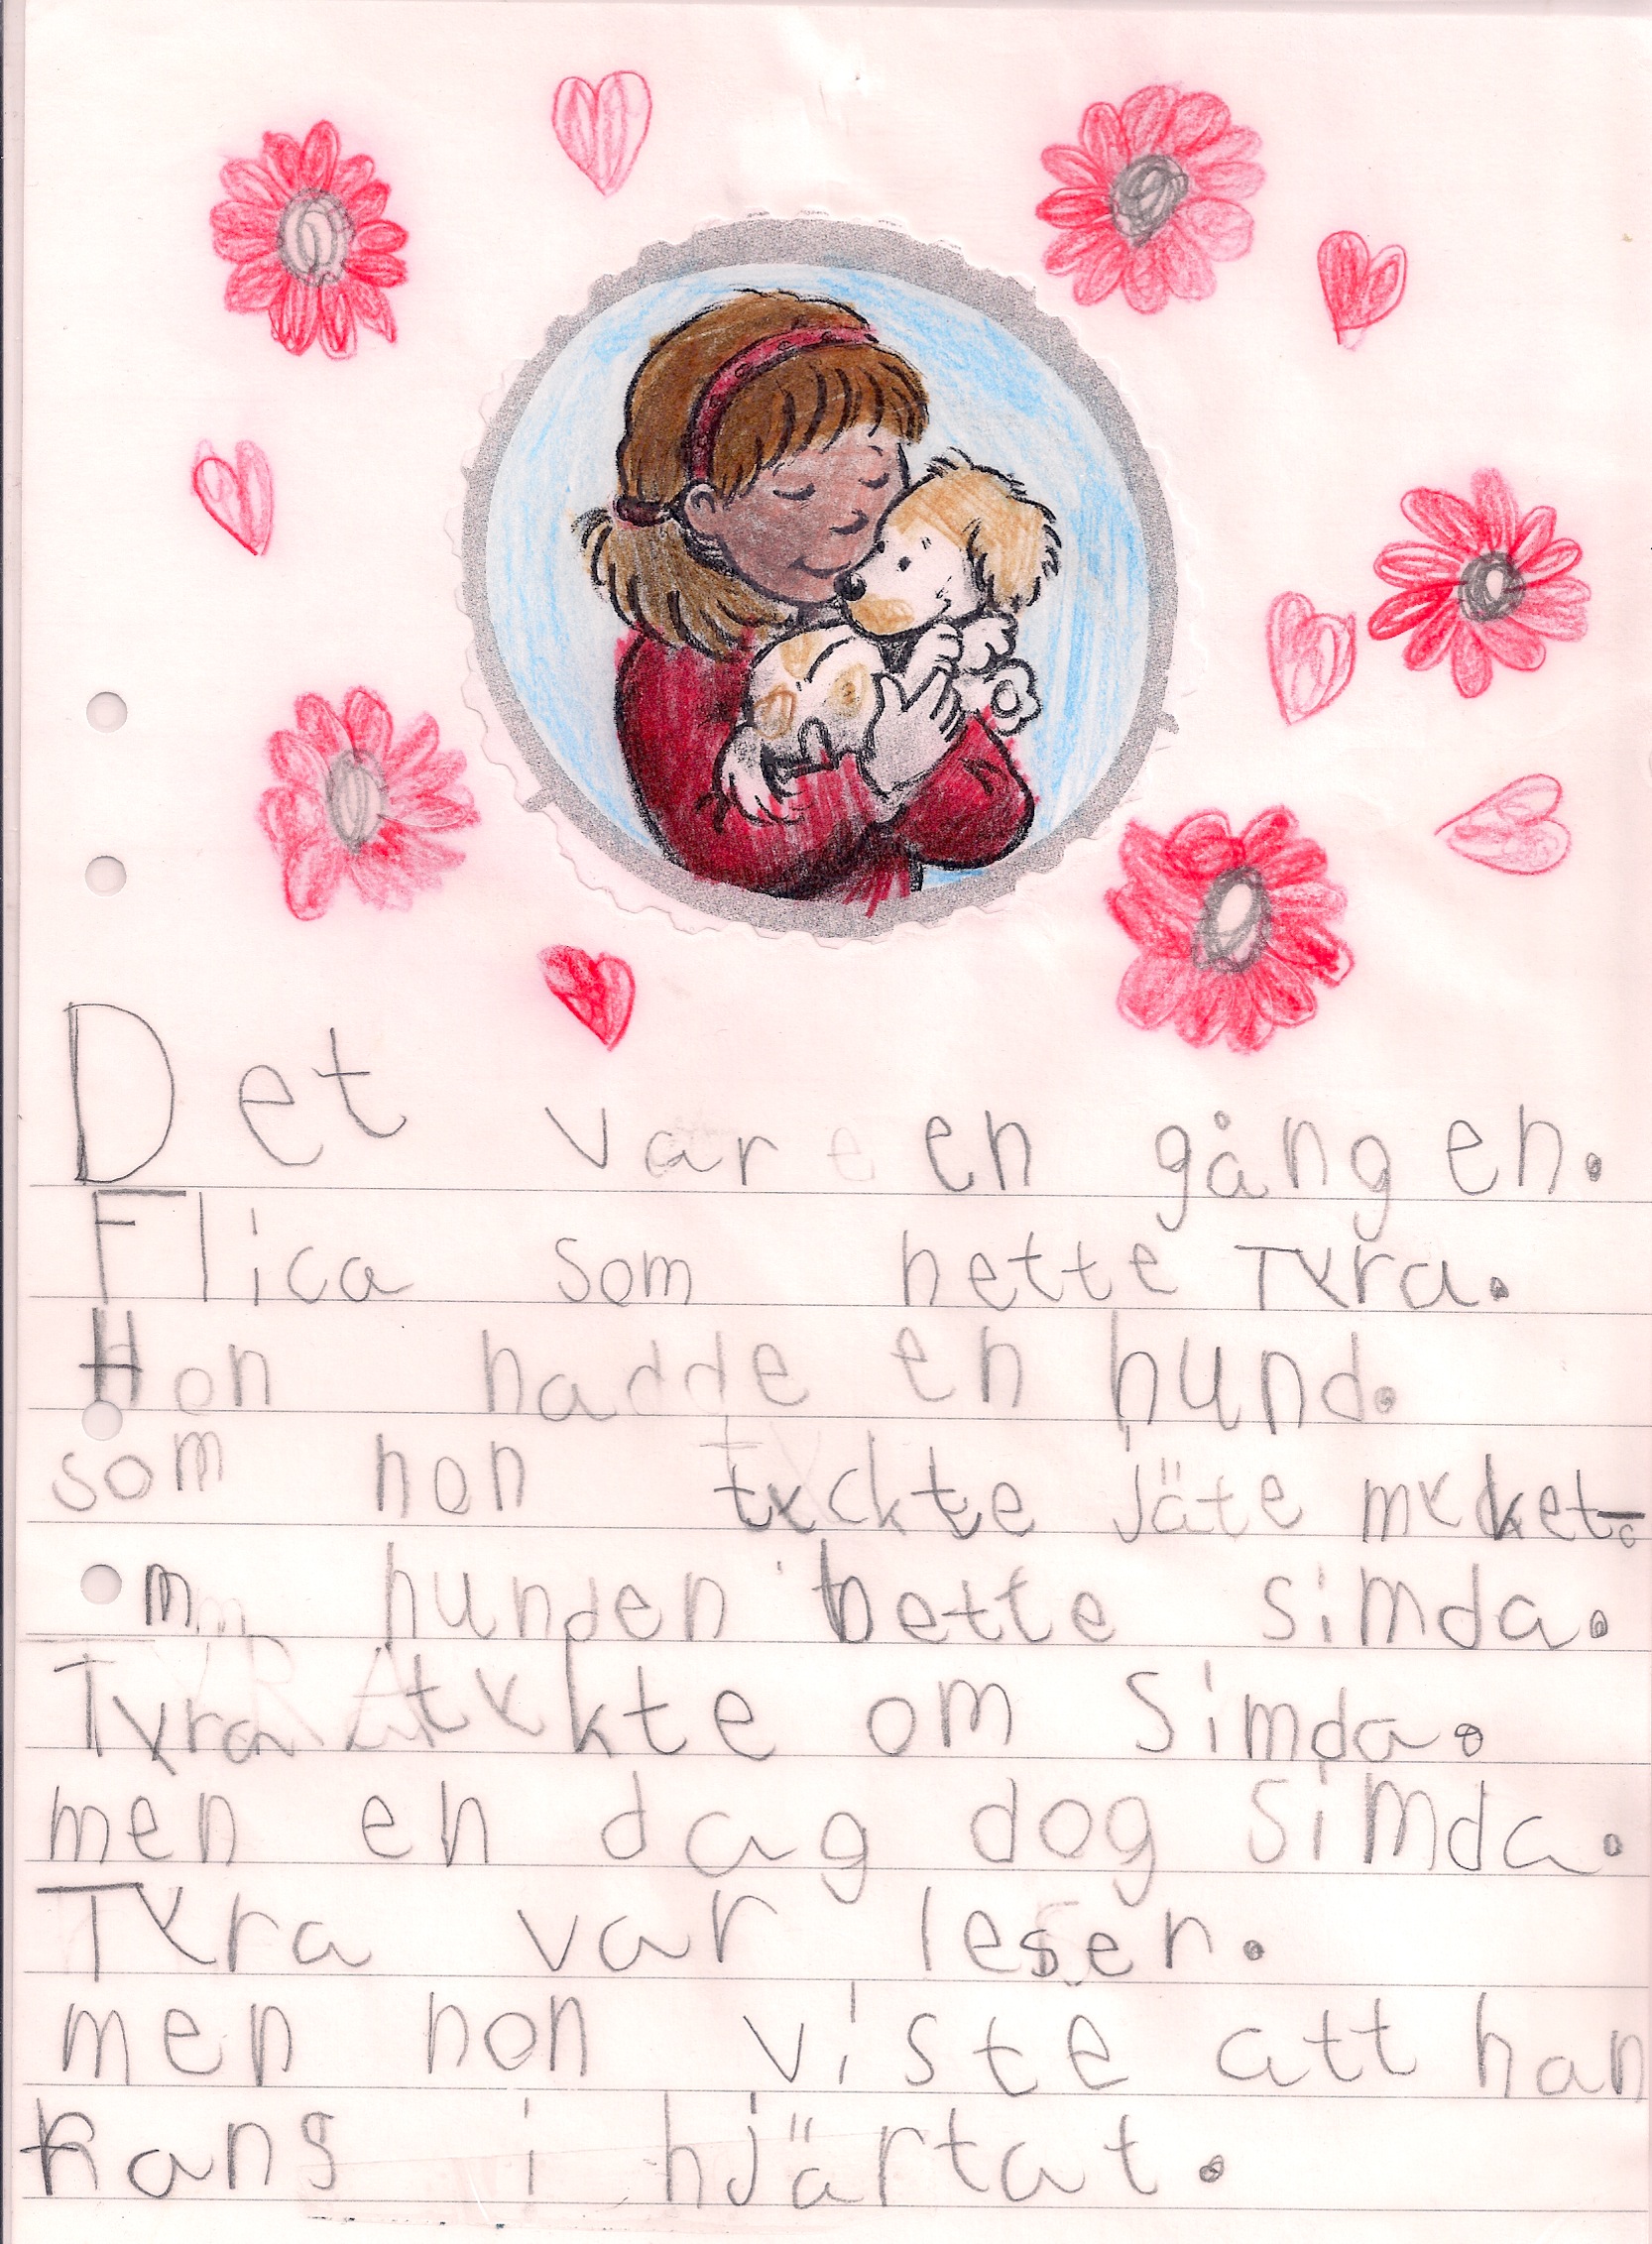 Det var en gång en.
Flica som hette Tyra.
Hon hadde en hund.
som hon tyckte jäte mycket.
om hunden hette simda.
Tyra tykte om Simda.
men en dag dog Simda.
Tyra var lesen.
men hon viste att han
fans i hjärtat.